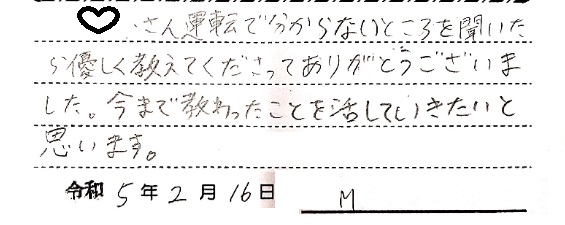 ♡さん運転で分からないところを聞いた
ら優しく教えてくださってありがとうございま
した。今まで教わったことを活していきたいと
思います。
令和5年2月16日 M